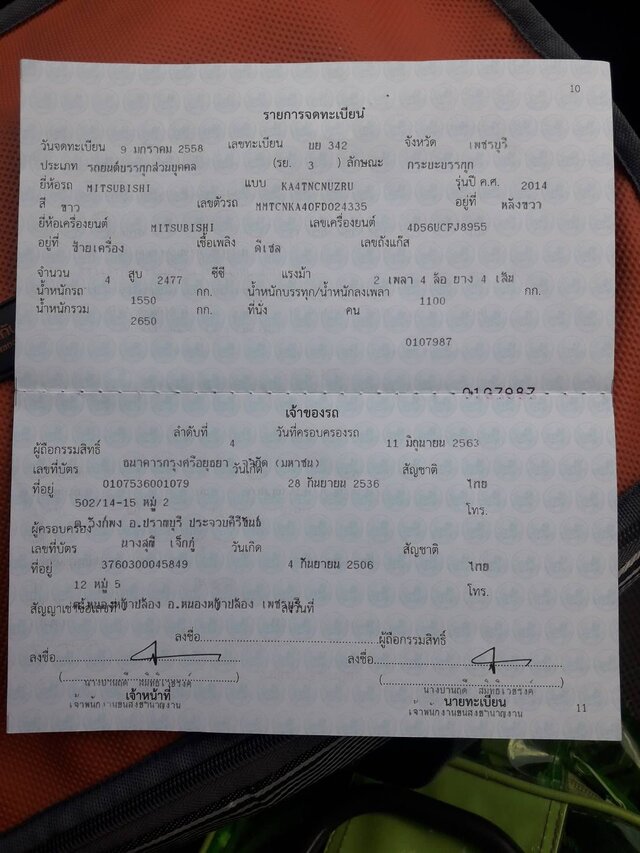 10
รายการจดทะเบียน
วันจดทะเบียน 9 มกราคม 2558 เลขทะเบียน บย 342 จังหวัด เพชรบุรี
ประเภท รถยนต์บรรทุกส่วนบุคคล (รย. 3 ) ลักษณะ กระบะบรรทุก
ยี่ห้อรถ MITSUBISHI แบบ KA4TNCNUZRU รุ่นปี ค.ศ. 2014
สี ขาว เลขตัวรถ MMTCNKA40FD024335 อยู่ที่ หลังขวา
ยี่ห้อเครื่องยนต์ MITSUBISHI เลขเครื่องยนต์ 4D56UCFJ8955
อยู่ที่ ซ้ายเครื่อง เชื้อเพลิง ดีเซล เลขถังแก๊ส
จำนวน 4 สูบ 2477 ซีซี แรงม้า 2 เพลา 4 ล้อ ยาง 4 เส้น
น้ำหนักรถ 1550 กก. น้ำหนักบรรทุก/น้ำหนักลงเพลา 1100 กก.
น้ำหนักรวม 2650 กก. ที่นั่ง คน
0107987
0107987
เจ้าของรถ
ลำดับที่ 4 วันที่ครอบครองรถ 11 มิถุนายน 2563
ผู้ถือกรรมสิทธิ์ ธนาคารกรุงศรีอยุธยา จำกัด (มหาชน)
เลขที่บัตร 0107536001079 วันเกิด 28 กันยายน 2536 สัญชาติ ไทย
ที่อยู่ 502/14-15 หมู่ 2 โทร.
ต.วังก์พง อ.ปราณบุรี ประจวบคีรีขันธ์
ผู้ครอบครอง นางสุพี เจ็กภู่
เลขที่บัตร 3760300045849 วันเกิด 4 กันยายน 2506 สัญชาติ ไทย
ที่อยู่ 12 หมู่ 5 โทร.
ต.หนองหญ้าปล้อง อ.หนองหญ้าปล้อง เพชรบุรี
สัญญาเช่าซื้อเลขที่ วันที่
ลงชื่อ ผู้ถือกรรมสิทธิ์
ลงชื่อ ลงชื่อ
เจ้าหน้าที่ นายทะเบียน
เจ้าพนักงานขนส่งชำนาญงาน เจ้าพนักงานขนส่งชำนาญงาน
11